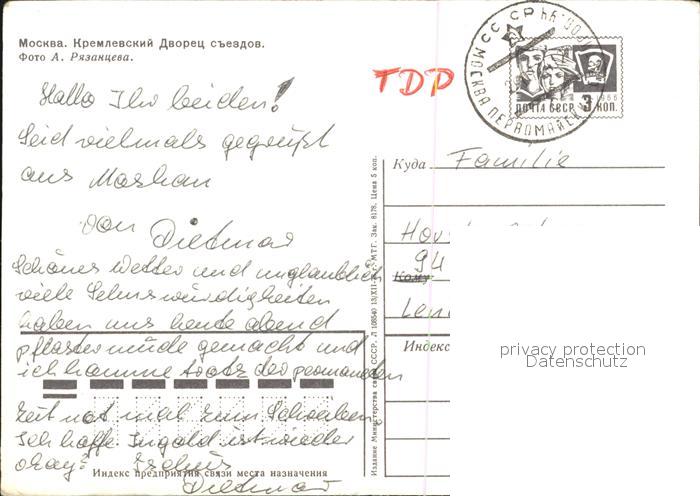 Москва. Кремлевский Дворец съездов.
Фото А. Рязанцева.
TDP
Hallo Ihr beiden!
Seid vielmals gegrüßt
aus Moskau
von Dietmar
Schönes Wetter und unglaublich
viele Sehenswürdigkeiten
haben uns heute abend
pflastermüde gemacht und
ich komme trotz der
Zeit not mal zum Schreiben
Ich hoffe Ingold ist wieder
okay? Tschüs
Dietmar
Индекс предприятия связи места назначения
Издание Министерства связи СССР. Л 108540 13/XII-г. МТГ. Зак. 8178. Цена 5 коп.
МОСКВА ПЕРВОМАЙСК
СССР
ПОЧТА СССР 3 КОП.
1966
Куда Familie
Кому
94
Индекс
privacy protection
Datenschutz